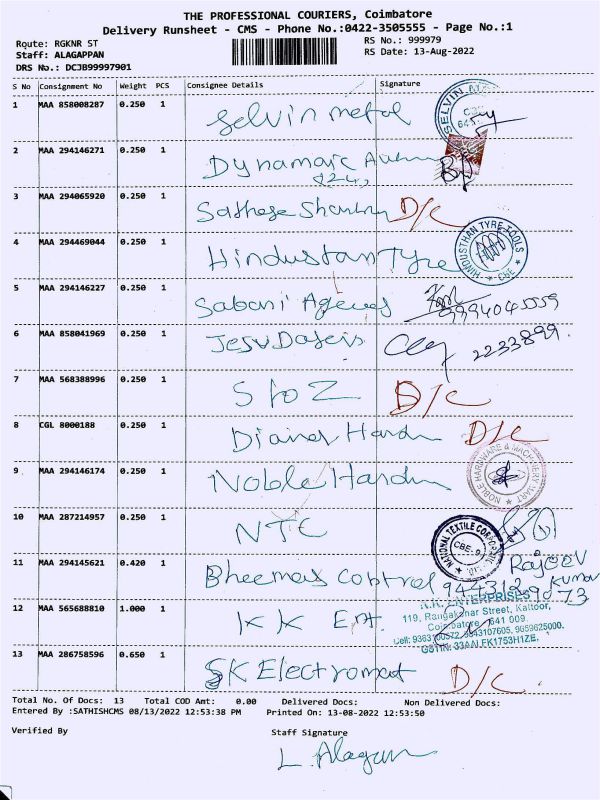 THE PROFESSIONAL COURIERS, Coimbatore
Delivery Runsheet - CMS - Phone No.:0422-3505555 - Page No.:1
Route: RGKNR ST
RS No.: 999979
Staff: ALAGAPPAN
RS Date: 13-Aug-2022
DRS No.: DCJB99997901
S No Consignment No Weight PCS Consignee Details Signature
1 MAA 858008287 0.250 1 Selvin metal
SELVIN
2 MAA 294146271 0.250 1 Dynamaic
3 MAA 294065920 0.250 1 Sathese D/C
4 MAA 294469044 0.250 1 Hindustan Tyre
HINDUSTHAN TYRE TOOLS CBE
5 MAA 294146227 0.250 1 Sabani Agencies
9994045559
6 MAA 858041969 0.250 1 2233899
7 MAA 568388996 0.250 1 S to Z D/C
8 CGL 8000188 0.250 1 D/C
9 MAA 294146174 0.250 1 Noble
NOBLE HARDWARE & MACHINERY MART
10 MAA 287214957 0.250 1 NTC
NATIONAL TEXTILE
11 MAA 294145621 0.420 1 Bheemas Control
Rajeev Kumar
12 MAA 565688810 1.000 1 KK Ent.
K.K. ENTERPRISES
119, Rangakonar Street, Kattoor,
Coimbatore - 641 009.
13 MAA 286758596 0.650 1 SK Electromat D/C
Total No. Of Docs: 13 Total COD Amt: 0.00 Delivered Docs: Non Delivered Docs:
Entered By :SATHISHCMS 08/13/2022 12:53:38 PM Printed On: 13-08-2022 12:53:50
Verified By Staff Signature
L. Alagan